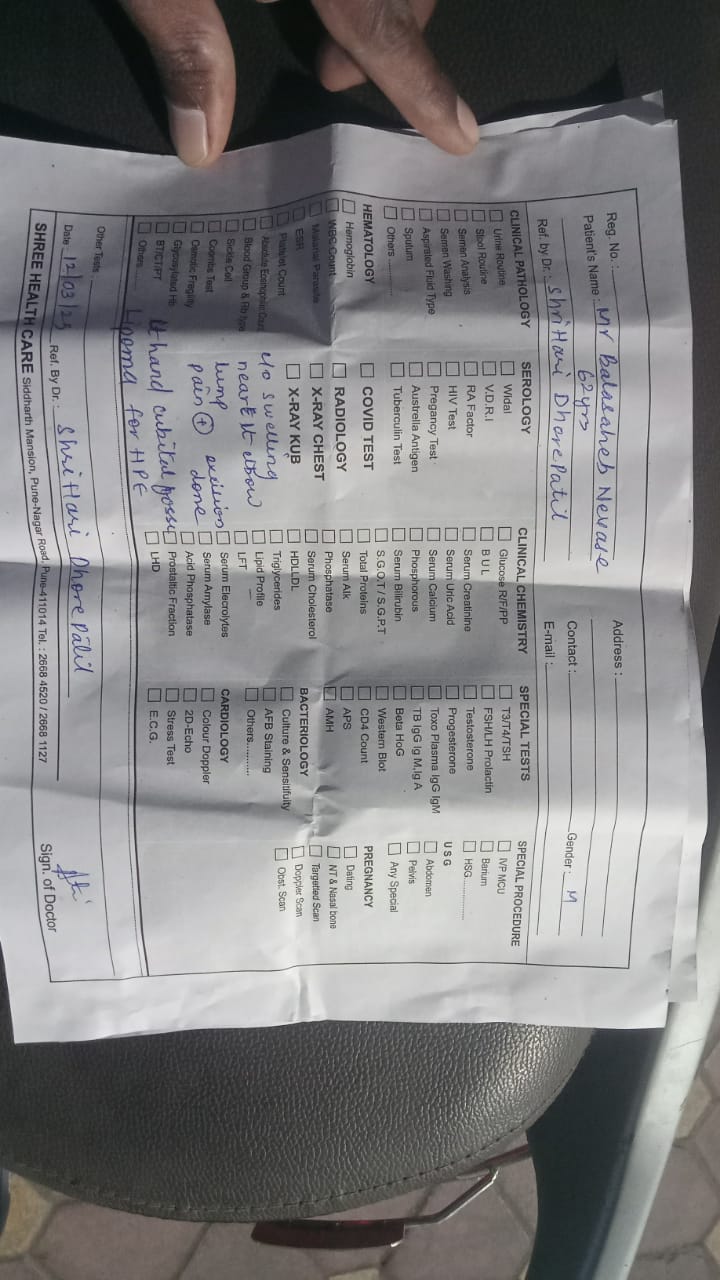 Reg. No. :
Patient's Name : Mr Balasaheb Nevase
62yrs
Ref. by Dr. : ShriHari Dhorepatil
Address :
Contact :
E-mail :
Gender : M
CLINICAL PATHOLOGY
Urine Routine
Stool Routine
Semen Analysis
Semen Washing
Aspirated Fluid Type
Sputum
Others
HEMATOLOGY
Hemoglobin
WBC Count
Malarial Parasite
ESR
Platelet Count
Absolute Eosinophil Count
Blood Group & Rh type
Sickle Cell
Coombs Test
Osmotic Fragility
Glycosylated Hb
BT/CT/PT
Others
SEROLOGY
Widal
V.D.R.I
RA Factor
HIV Test
Pregancy Test
Austrella Antigen
Tuberculin Test
COVID TEST
RADIOLOGY
X-RAY CHEST
X-RAY KUB
c/o swelling
near lt elbow
lump excision
pain + done
lt hand cubital fossa
Lipoma for HPE
CLINICAL CHEMISTRY
Glucose R/F/PP
B U L
Serum Creatinine
Serum Uric Acid
Serum Calcium
Phosphorous
Serum Bilirubin
S.G.O.T / S.G.P.T
Total Proteins
Serum Alk
Phosphatase
Serum Cholesterol
HDLLDL
Triglycerides
Lipid Profile
LFT
Serum Elecrolytes
Serum Amylase
Acid Phosphatase
Prostaltic Fraction
LHD
SPECIAL TESTS
T3/T4/TSH
FSH/LH Prolactin
Testosterone
Progesterone
Toxo Plasma IgG IgM
TB IgG Ig M,Ig A
Beta HoG
Western Blot
CD4 Count
APS
AMH
BACTERIOLOGY
Culture & Sensitifuity
AFB Staining
Others...........
CARDIOLOGY
Colour Doppler
2D-Echo
Stress Test
E.C.G.
SPECIAL PROCEDURE
IVP MCU
Barium
HSG..............
U S G
Abdomen
Pelvis
Any Special
PREGNANCY
Dating
NT & Nasal bone
Targetted Scan
Doppler Scan
Obst. Scan
Other Tests :
Date : 12/03/25 Ref. By Dr. : ShriHari Dhorepatil
Sign. of Doctor
SHREE HEALTH CARE Siddharth Mansion, Pune-Nagar Road, Pune-411014 Tel. : 2668 4520 / 2668 1127